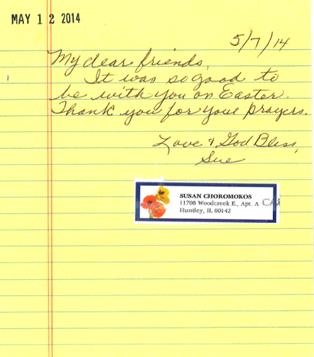 MAY 12 2014
5/7/14
My dear friends,
It was so good to
be with you on Easter.
Thank you for your prayers.
Love & God Bless,
Sue
SUSAN CHOROMOKOS
11708 Woodcreek E., Apt. A
Huntley, IL 60142